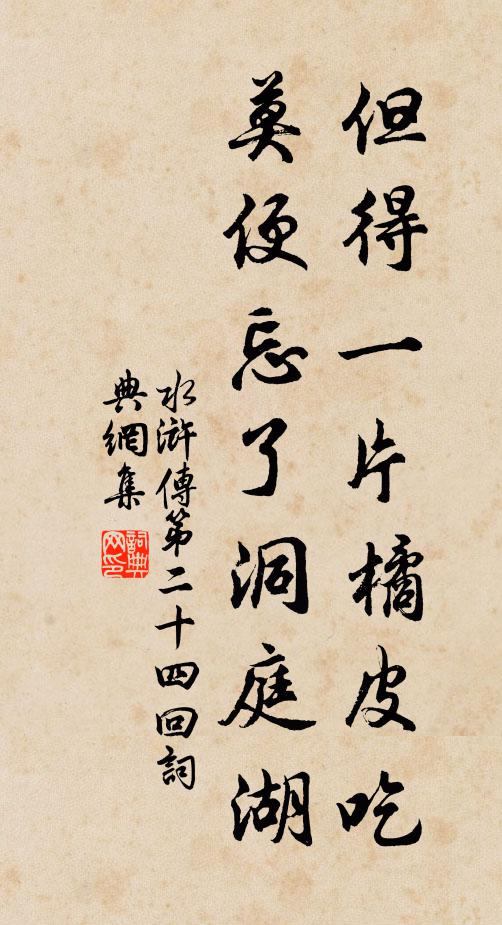 但得一片橘皮吃
莫便忘了洞庭湖
水滸傳第二十四回詞
典網集
詞典
网印